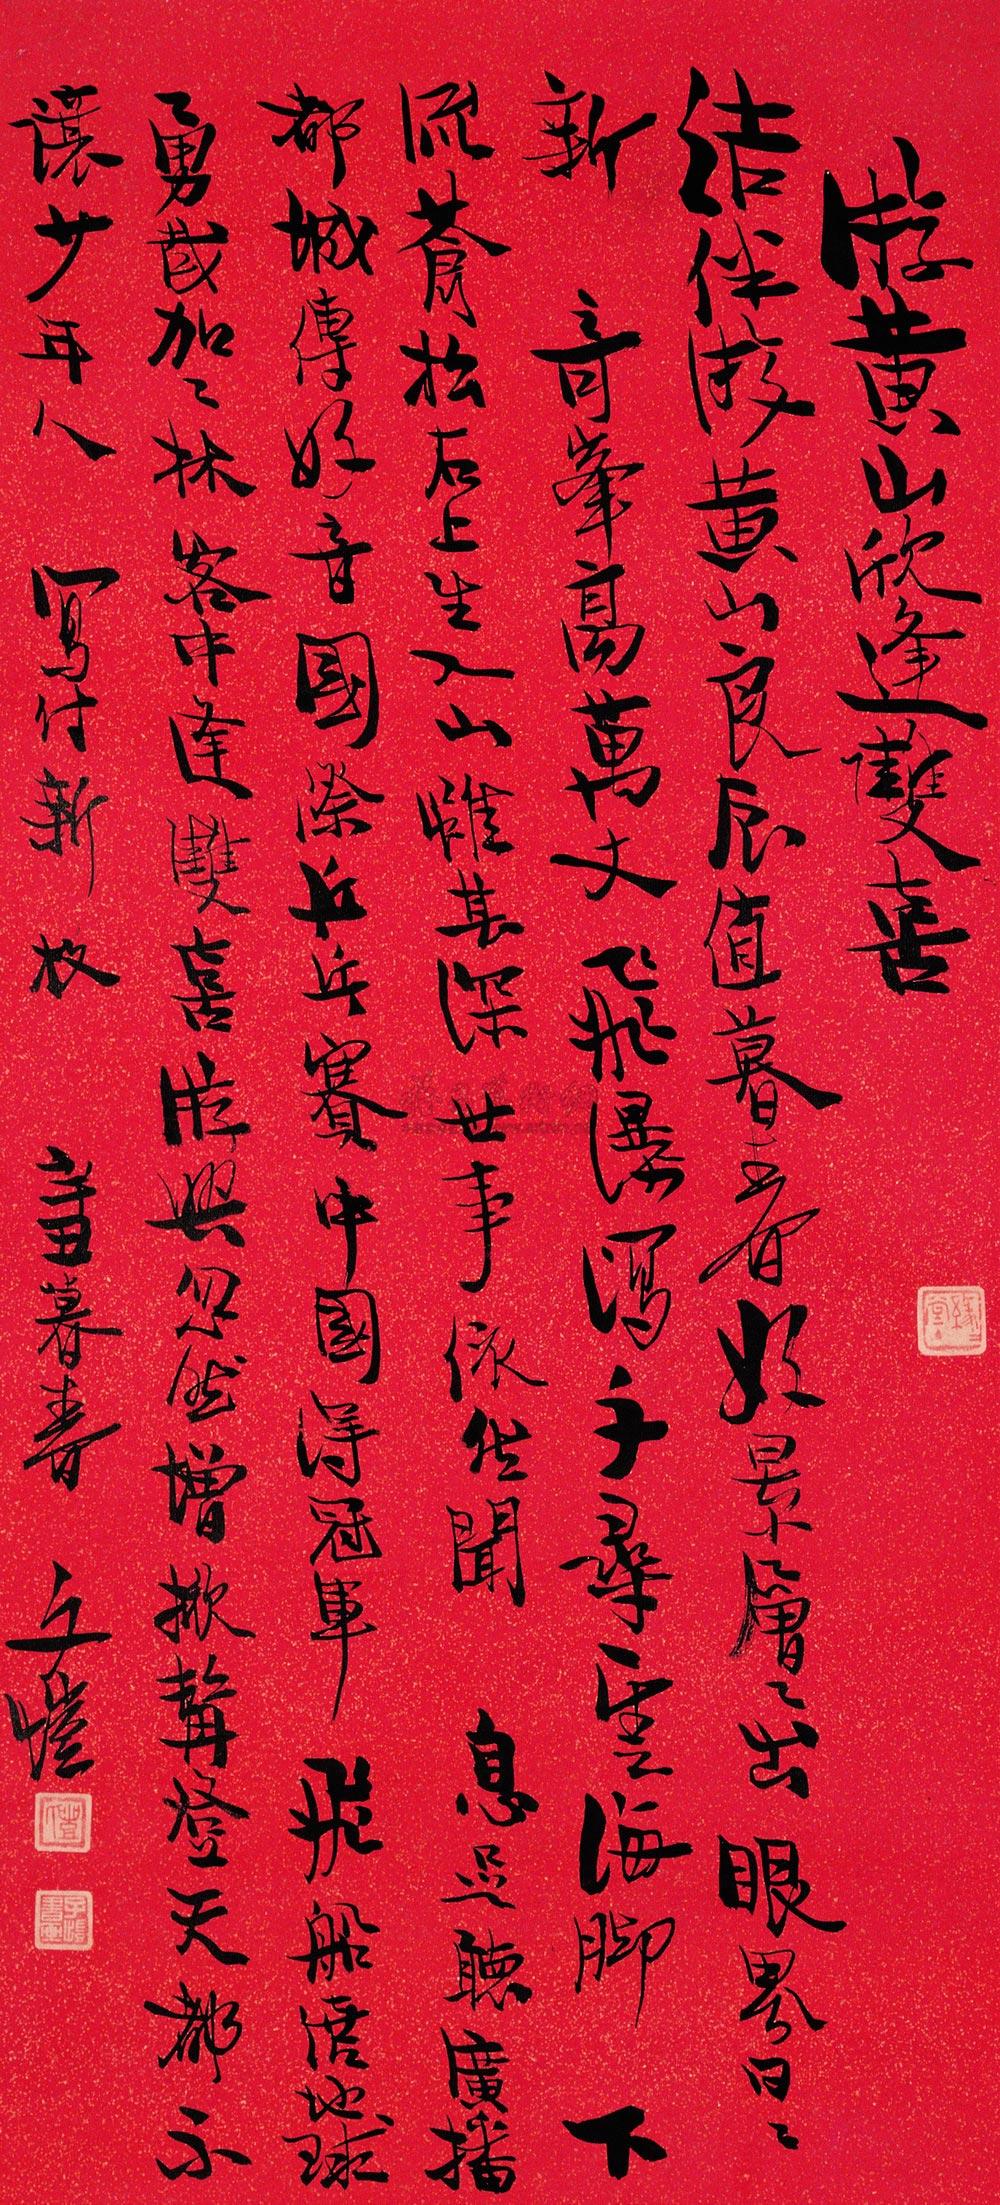 游黄山欣逢雙喜
結伴游黄山良辰值暮春好景層々出眼界日々
新奇峯高萬丈飛瀑瀉千尋雲海脚下
流蒼松石上生入山惟甚深世事依然聞息足聽廣播
都城傳好音國際乒乓賽中國得冠軍飛船繞地球
勇武加々林客中逢雙喜游興忽然增掀髯登天都不
讓少年人寫付新枚辛丑暮春子愷